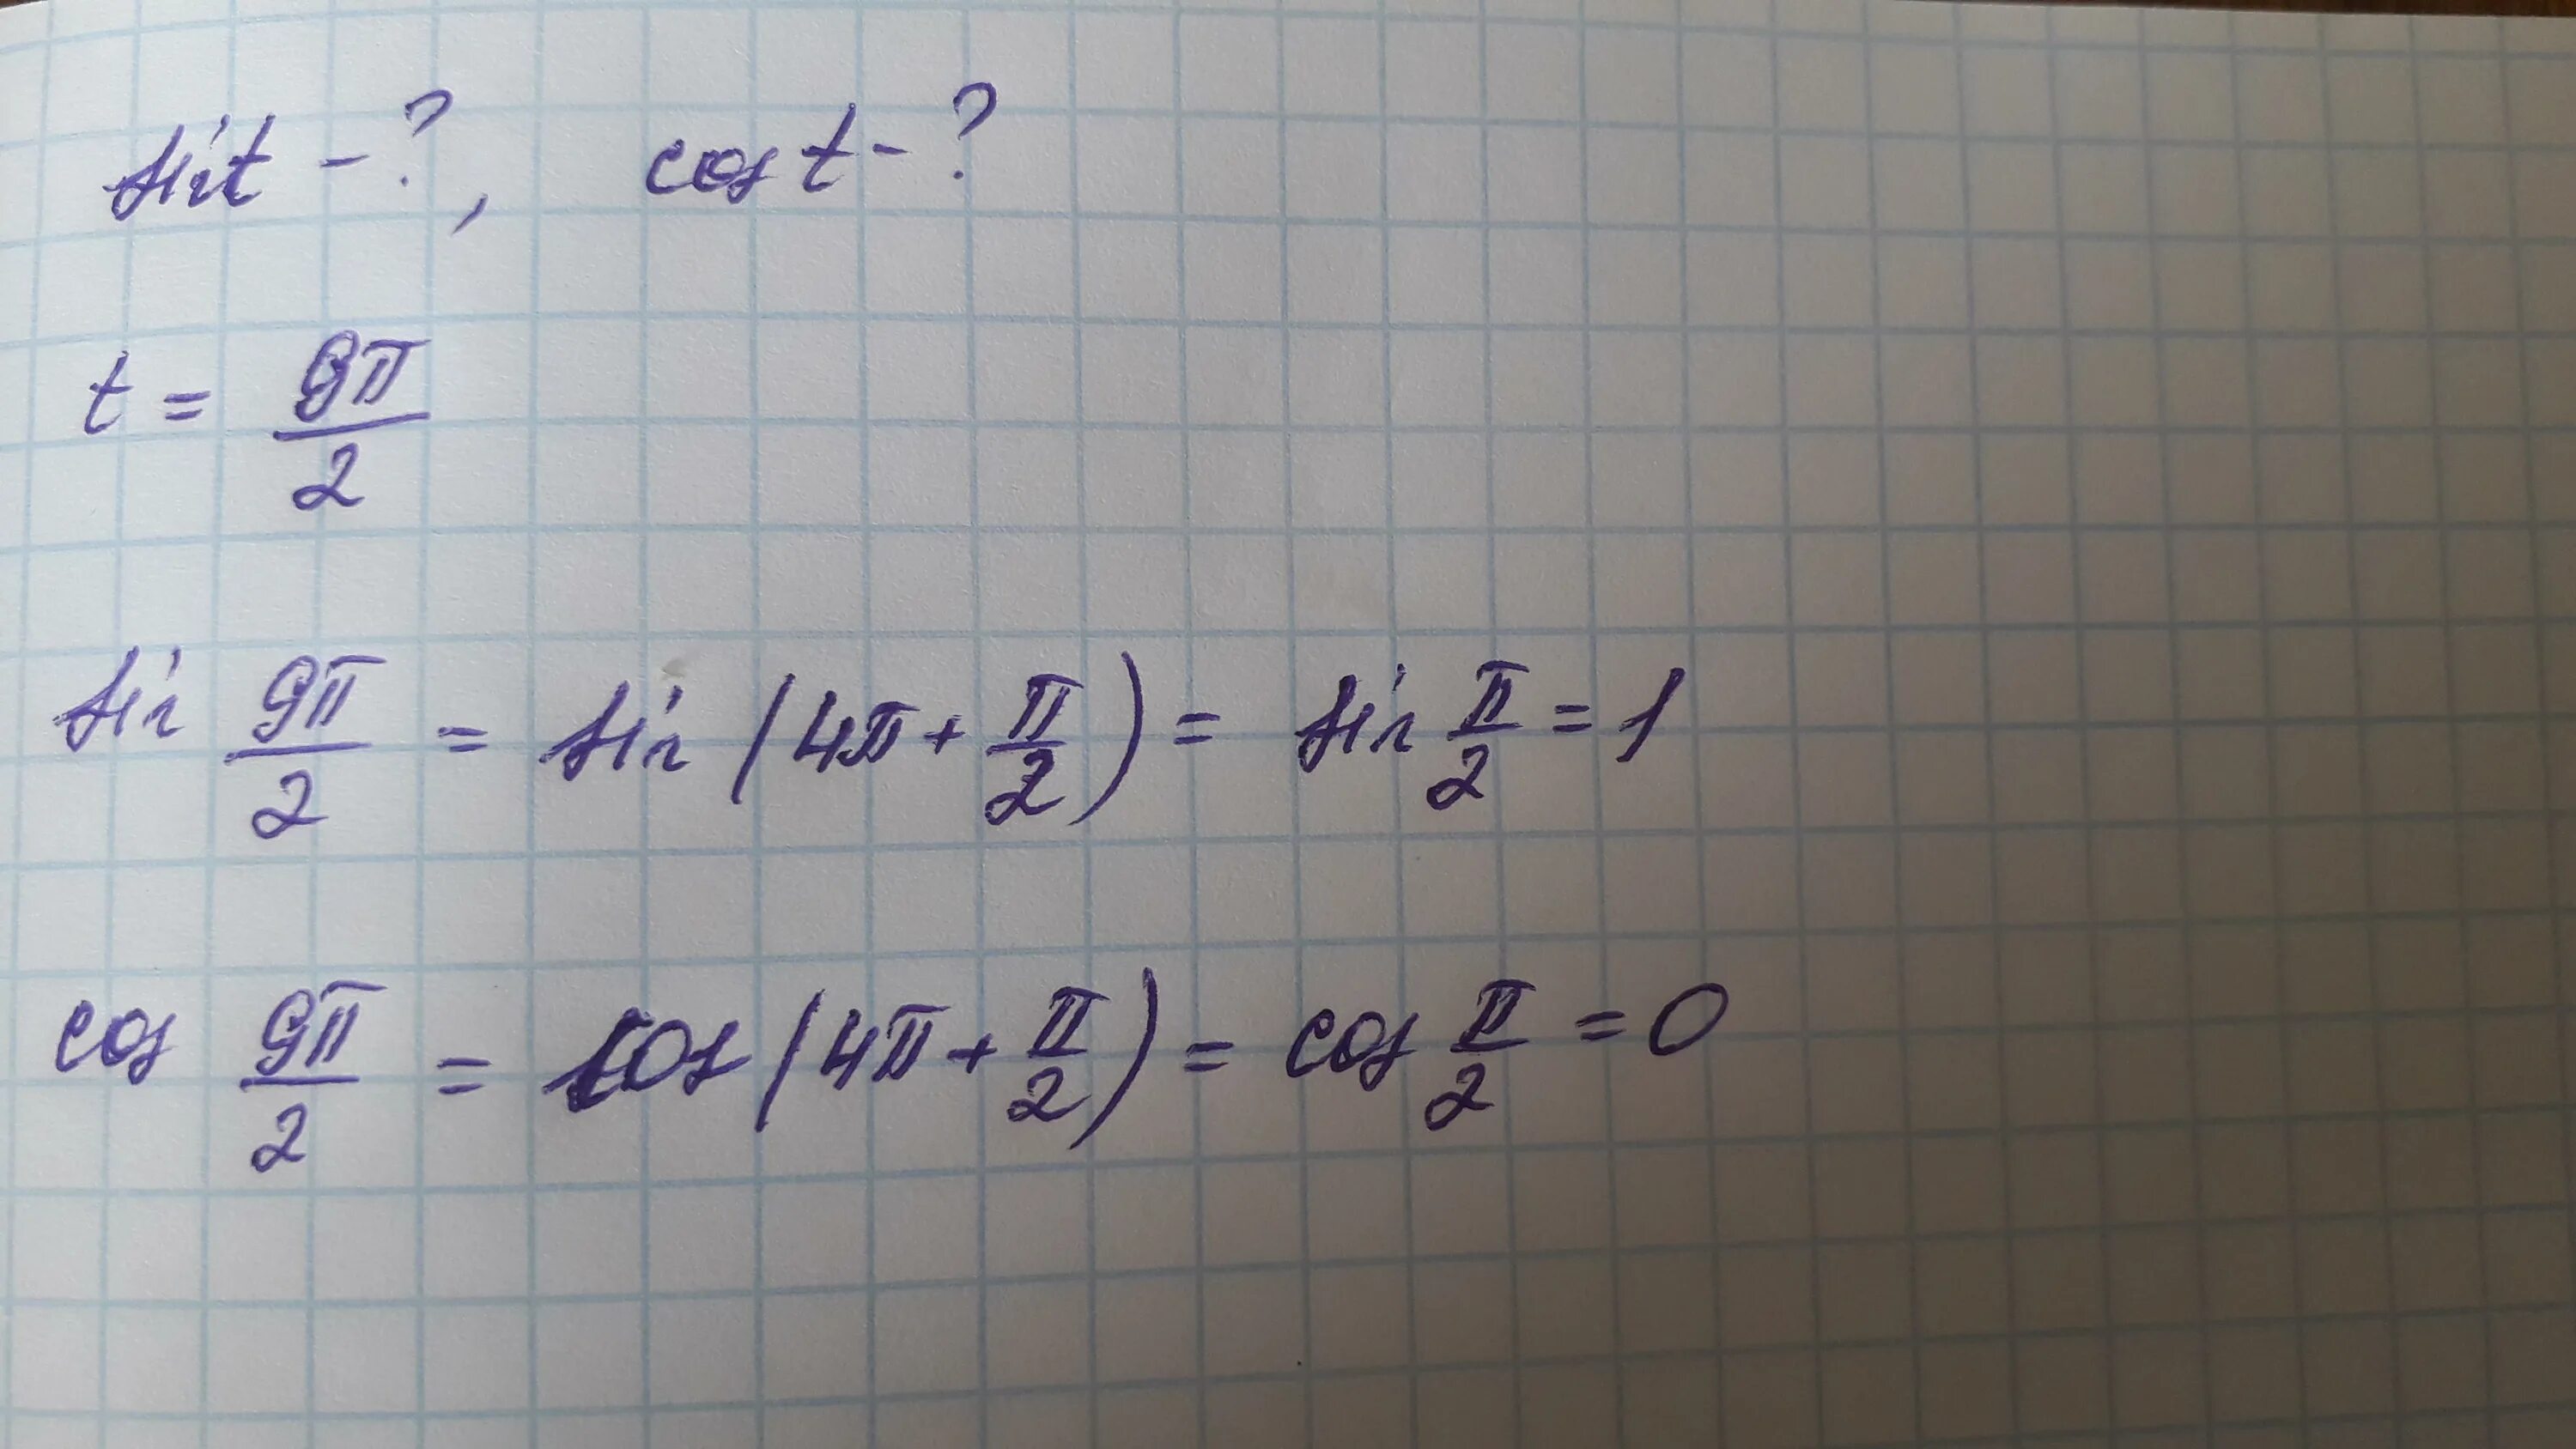 sin t - ?, cos t - ?
t = 9π/2
sin 9π/2 = sin (4π + π/2) = sin π/2 = 1
cos 9π/2 = cos (4π + π/2) = cos π/2 = 0